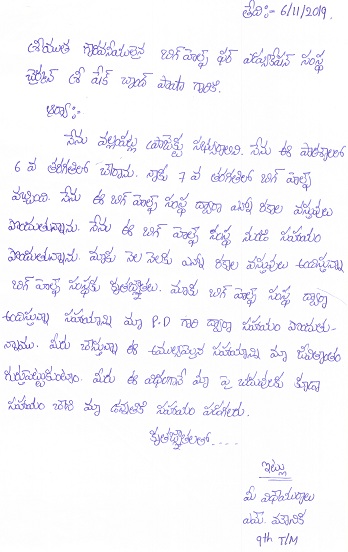 తేది:- 6/11/2019.
శ్రీయుత గౌరవనీయులైన బిగ్ హెల్ప్ ఫర్ ఎడ్యుకేషన్ సంస్థ
చైర్మన్ శ్రీ షేక్ చాంద్ పాషా గారికి.
ఆర్యా:-
నేను వట్టిపల్లి ప్రాజెక్ట్ సభ్యురాలిని. నేను ఈ పాఠశాలలో
6 వ తరగతిలో చేరాను. నాకు 7 వ తరగతిలో బిగ్ హెల్ప్
వచ్చింది. నేను ఈ బిగ్ హెల్ప్ సంస్థ ద్వారా ఎన్నో రకాల వస్తువులు
పొందుతున్నాను. నేను ఈ బిగ్ హెల్ప్ సంస్థ నుండి సహాయం
పొందుతున్నాను. మాకు నెల నెలకు ఎన్నో రకాల వస్తువులు అందిస్తున్న
బిగ్ హెల్ప్ సంస్థకు కృతజ్ఞతలు. మాకు బిగ్ హెల్ప్ సంస్థ ద్వారా
అందిస్తున్న సహాయాన్ని మా P.D గారి ద్వారా సహాయం పొందుతు-
న్నాము. మీరు చేస్తున్న ఈ అమూల్యమైన సహాయాన్ని మా జీవితాంతం
గుర్తుపెట్టుకుంటాం. మీరు ఈ విధంగానే మా పై చదువులకు కూడా
సహాయం చేసి మా ఉన్నతికి సహాయం పడగలరు.
కృతజ్ఞతలతో....
ఇట్లు
మీ విధేయురాలు
ఎమ్. మౌనిక
9th T/M